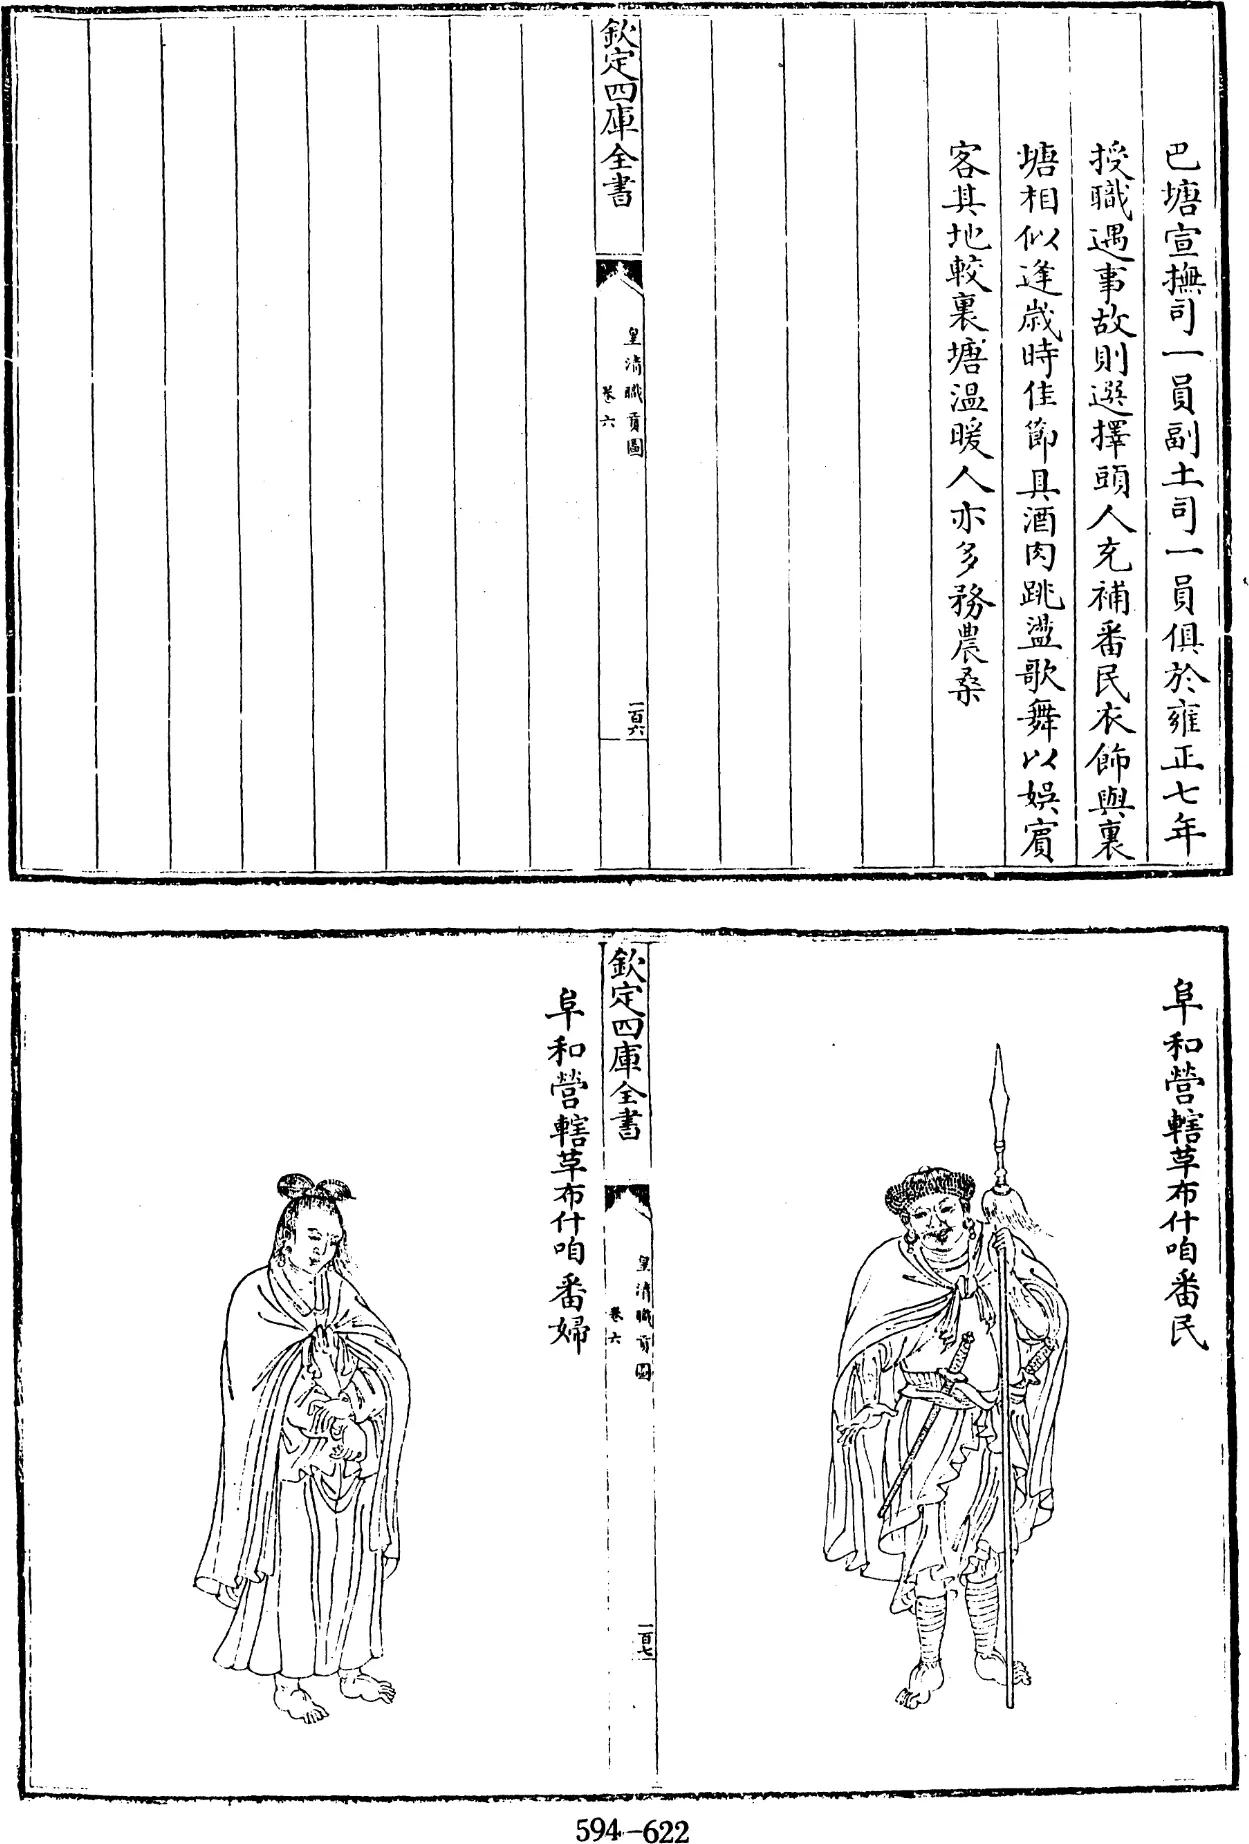 巴塘宣撫司一員副土司一員俱於雍正七年
授職遇事故則選擇頭人充補番民衣飾與裏
塘相似逢歲時佳節具酒肉跳藍歌舞以娛賓
客其地較裏塘温暖人亦多務農桑
欽定四庫全書
皇清職貢圖
卷六
一百六
阜和營轄草布什咱番民
欽定四庫全書
皇清職貢圖
卷六
一百七
阜和營轄草布什咱番婦
594-622